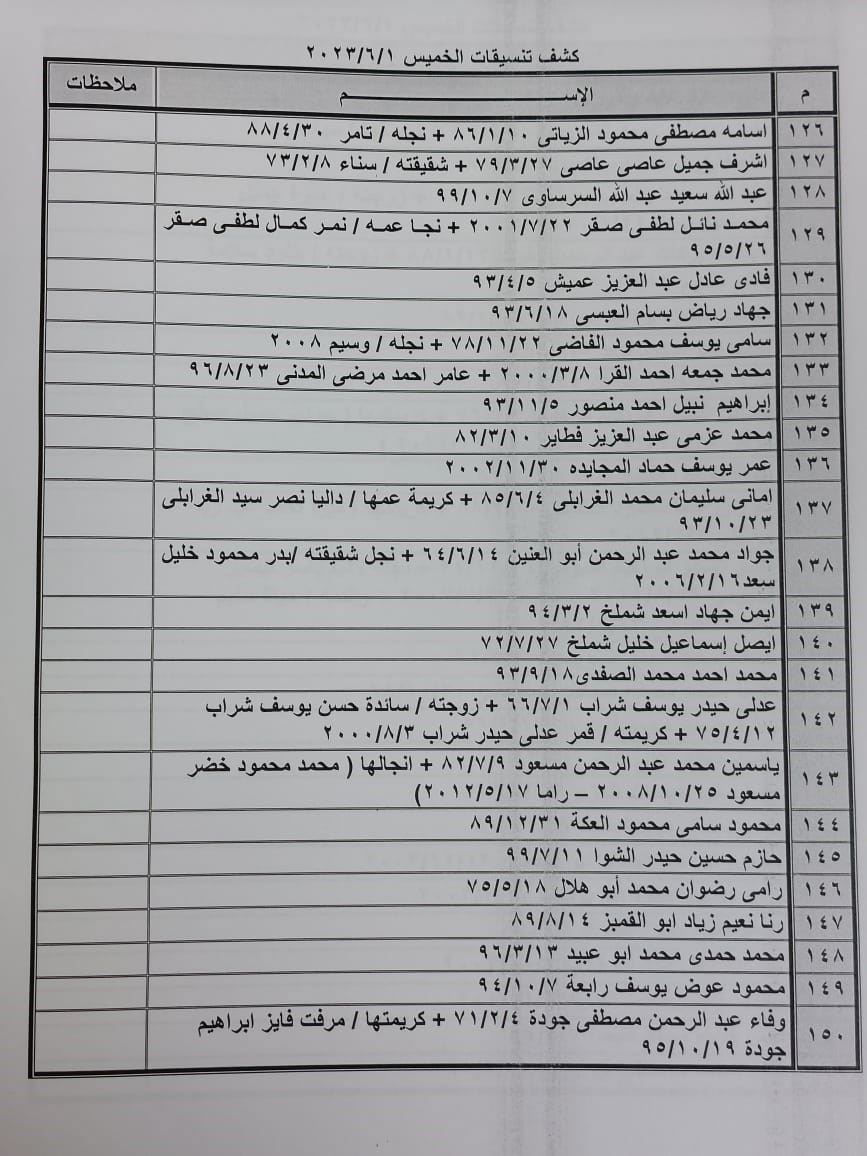 كشف تنسيقات الخميس ٢٠٢٣/٦/١
م الإســـــــــم ملاحظات
١٢٦ اسامه مصطفى محمود الزياتى ٨٦/١/١٠ + نجله / تامر ٨٨/٤/٣٠
١٢٧ اشرف جميل عاصى عاصى ٧٩/٣/٢٧ + شقيقته / سناء ٧٣/٢/٨
١٢٨ عبد الله سعيد عبد الله السرساوى ٩٩/١٠/٧
١٢٩ محمد نائل لطفى صقر ٢٠٠١/٧/٢٢ + نجا عمه / نمر كمال لطفى صقر
٩٥/٥/٢٦
١٣٠ فادى عادل عبد العزيز عميش ٩٣/٤/٥
١٣١ جهاد رياض بسام العبسى ٩٣/٦/١٨
١٣٢ سامى يوسف محمود الفاضى ٧٨/١١/٢٢ + نجله / وسيم ٢٠٠٨
١٣٣ محمد جمعه احمد القرا ٢٠٠٠/٣/٨ + عامر احمد مرضى المدنى ٩٦/٨/٢٣
١٣٤ إبراهيم نبيل احمد منصور ٩٣/١١/٥
١٣٥ محمد عزمى عبد العزيز فطاير ٨٢/٣/١٠
١٣٦ عمر يوسف حماد المجايده ٢٠٠٢/١١/٣٠
١٣٧ امانى سليمان محمد الغرابلى ٨٥/٦/٤ + كريمة عمها / داليا نصر سيد الغرابلى
٩٣/١٠/٢٣
١٣٨ جواد محمد عبد الرحمن أبو العنين ٦٤/٦/١٤ + نجل شقيقته /بدر محمود خليل
سعد٢٠٠٦/٢/١٦
١٣٩ ايمن جهاد اسعد شملخ ٩٤/٣/٢
١٤٠ ايصل إسماعيل خليل شملخ ٧٢/٧/٢٧
١٤١ محمد احمد محمد الصفدى٩٣/٩/١٨
١٤٢ عدلى حيدر يوسف شراب ٦٦/٧/١ + زوجته / سائدة حسن يوسف شراب
٧٥/٤/١٢ + كريمته / قمر عدلى حيدر شراب ٢٠٠٠/٨/٣
١٤٣ ياسمين محمد عبد الرحمن مسعود ٨٢/٧/٩ + انجالها ( محمد محمود خضر
مسعود ٢٠٠٨/١٠/٢٥ – راما ٢٠١٢/٥/١٧)
١٤٤ محمود سامى محمود العكة ٨٩/١٢/٣١
١٤٥ حازم حسين حيدر الشوا ٩٩/٧/١١
١٤٦ رامى رضوان محمد أبو هلال ٧٥/٥/١٨
١٤٧ رنا نعيم زياد ابو القمبز ٨٩/٨/١٤
١٤٨ محمد حمدى محمد ابو عبيد ٩٦/٣/١٣
١٤٩ محمود عوض يوسف رابعة ٩٤/١٠/٧
١٥٠ وفاء عبد الرحمن مصطفى جودة ٧١/٢/٤ + كريمتها / مرفت فايز ابراهيم
جودة ٩٥/١٠/١٩